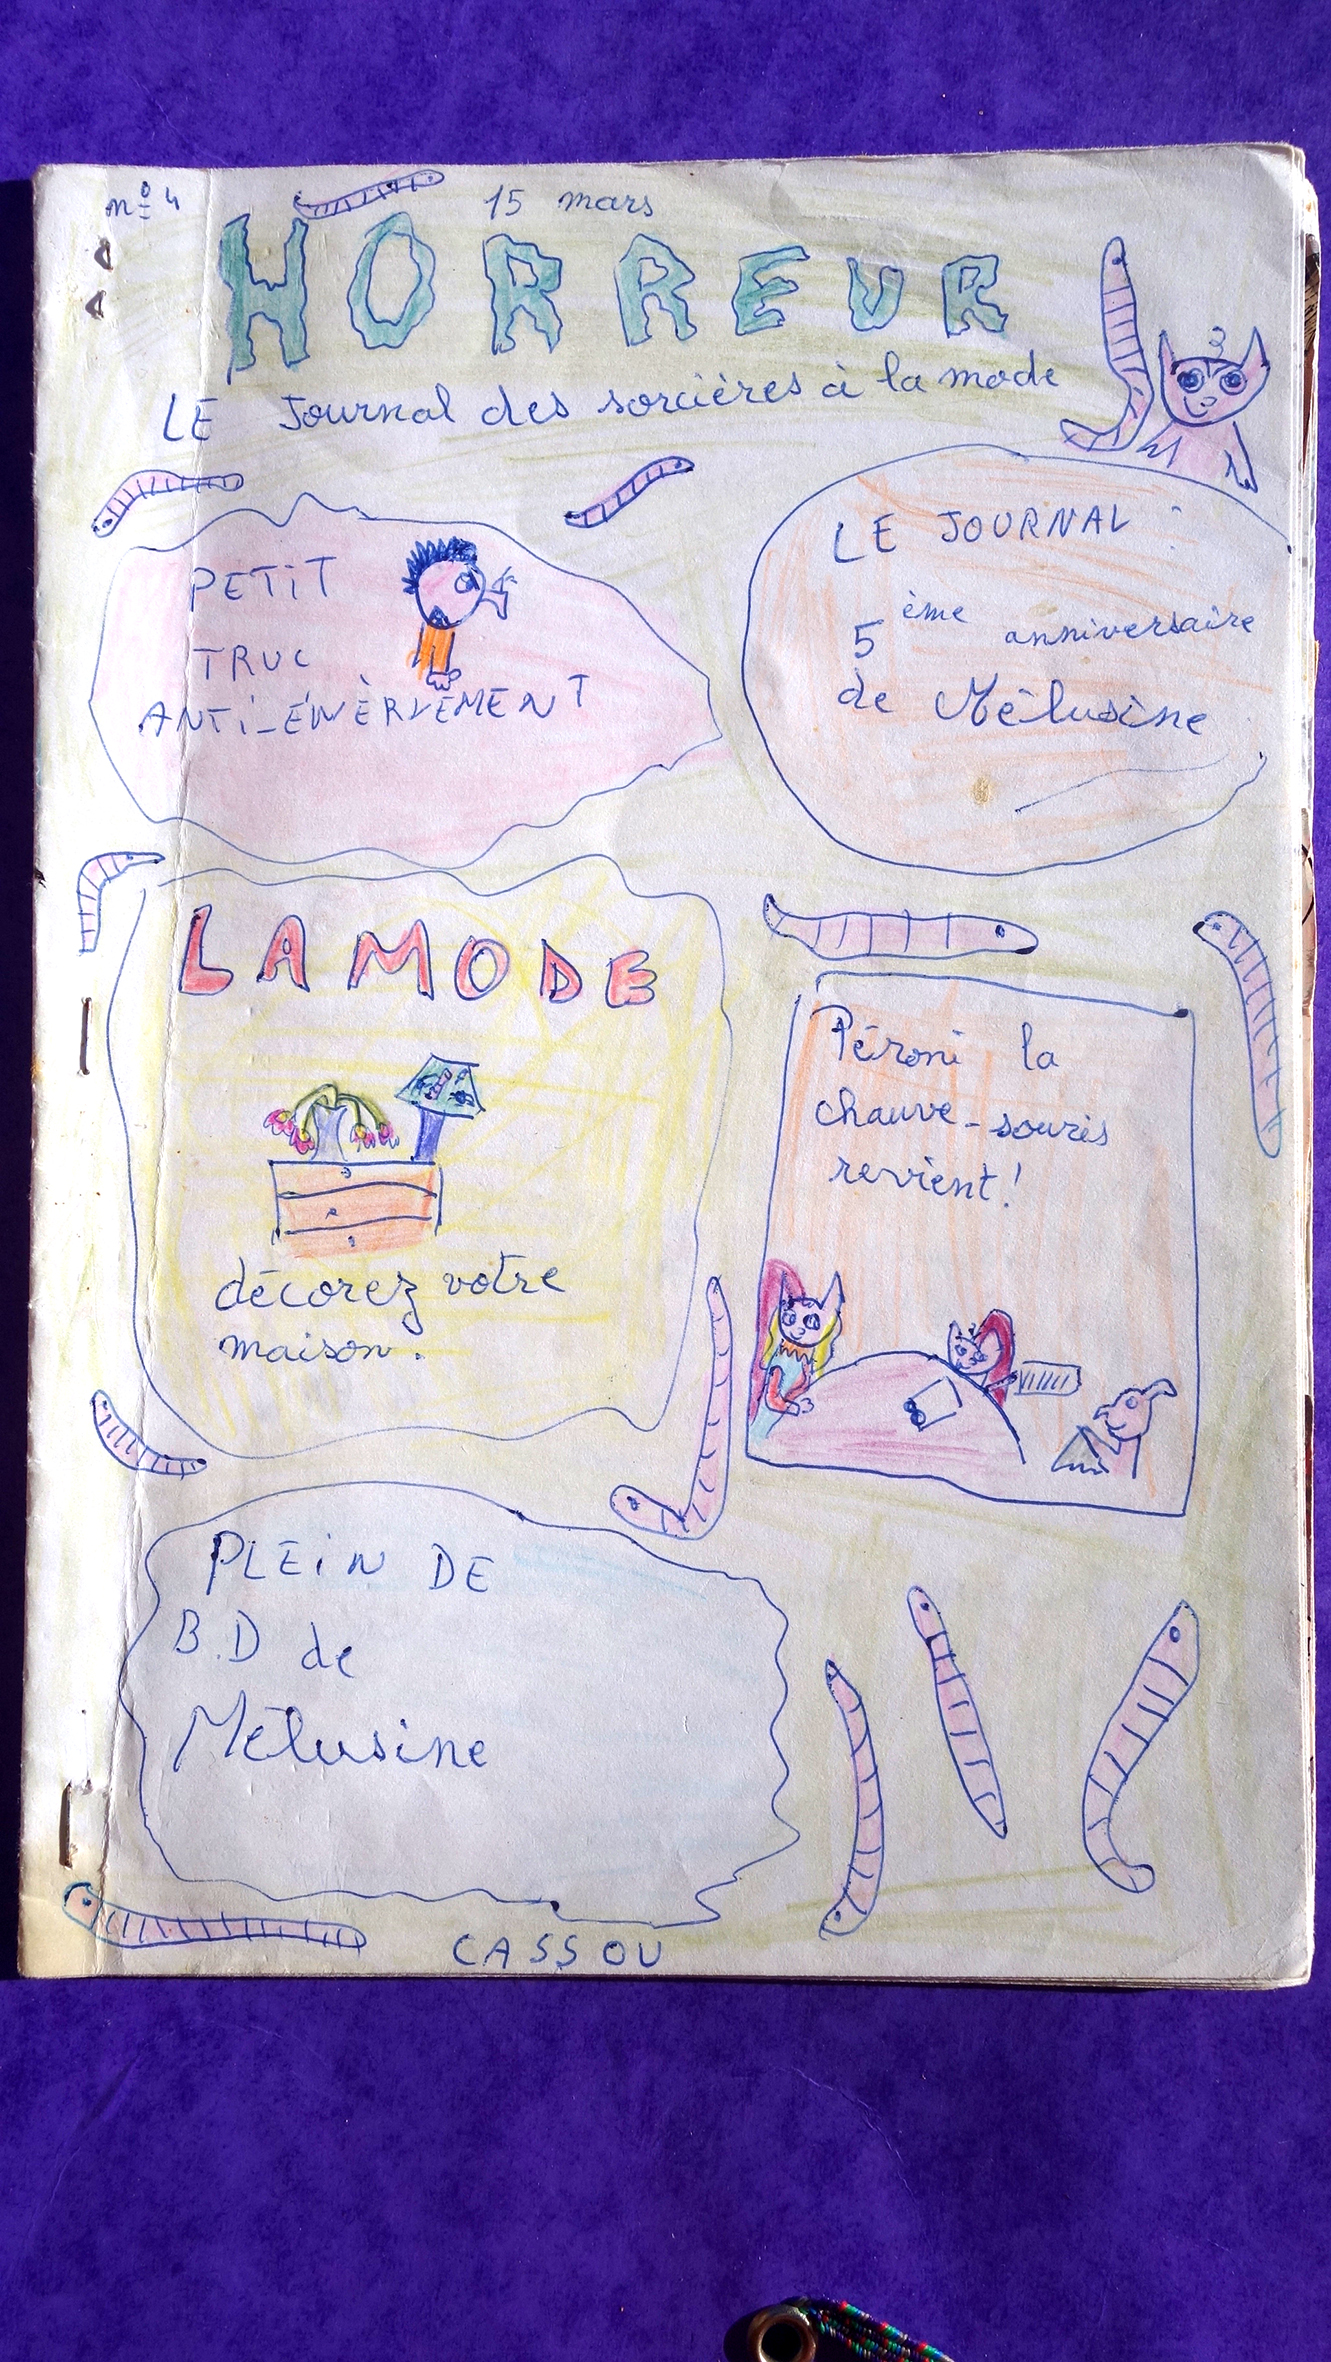 nº 4
15 mars
HORREUR
LE Journal des sorcières à la mode
PETIT
TRUC
ANTI-ÉNÈRVEMENT
LE JOURNAL :
5ème anniversaire
de Mélusine
LA MODE
décorez votre
maison.
Péroni la
chauve-souris
revient!
PLEIN DE
B.D de
Mélusine
CASSOU